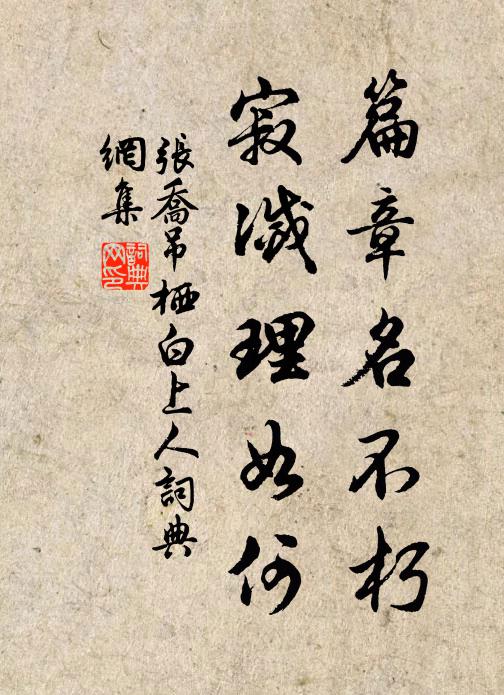 篇章名不朽
寂滅理如何
張喬吊栖白上人詞典
網集
詞典
网印